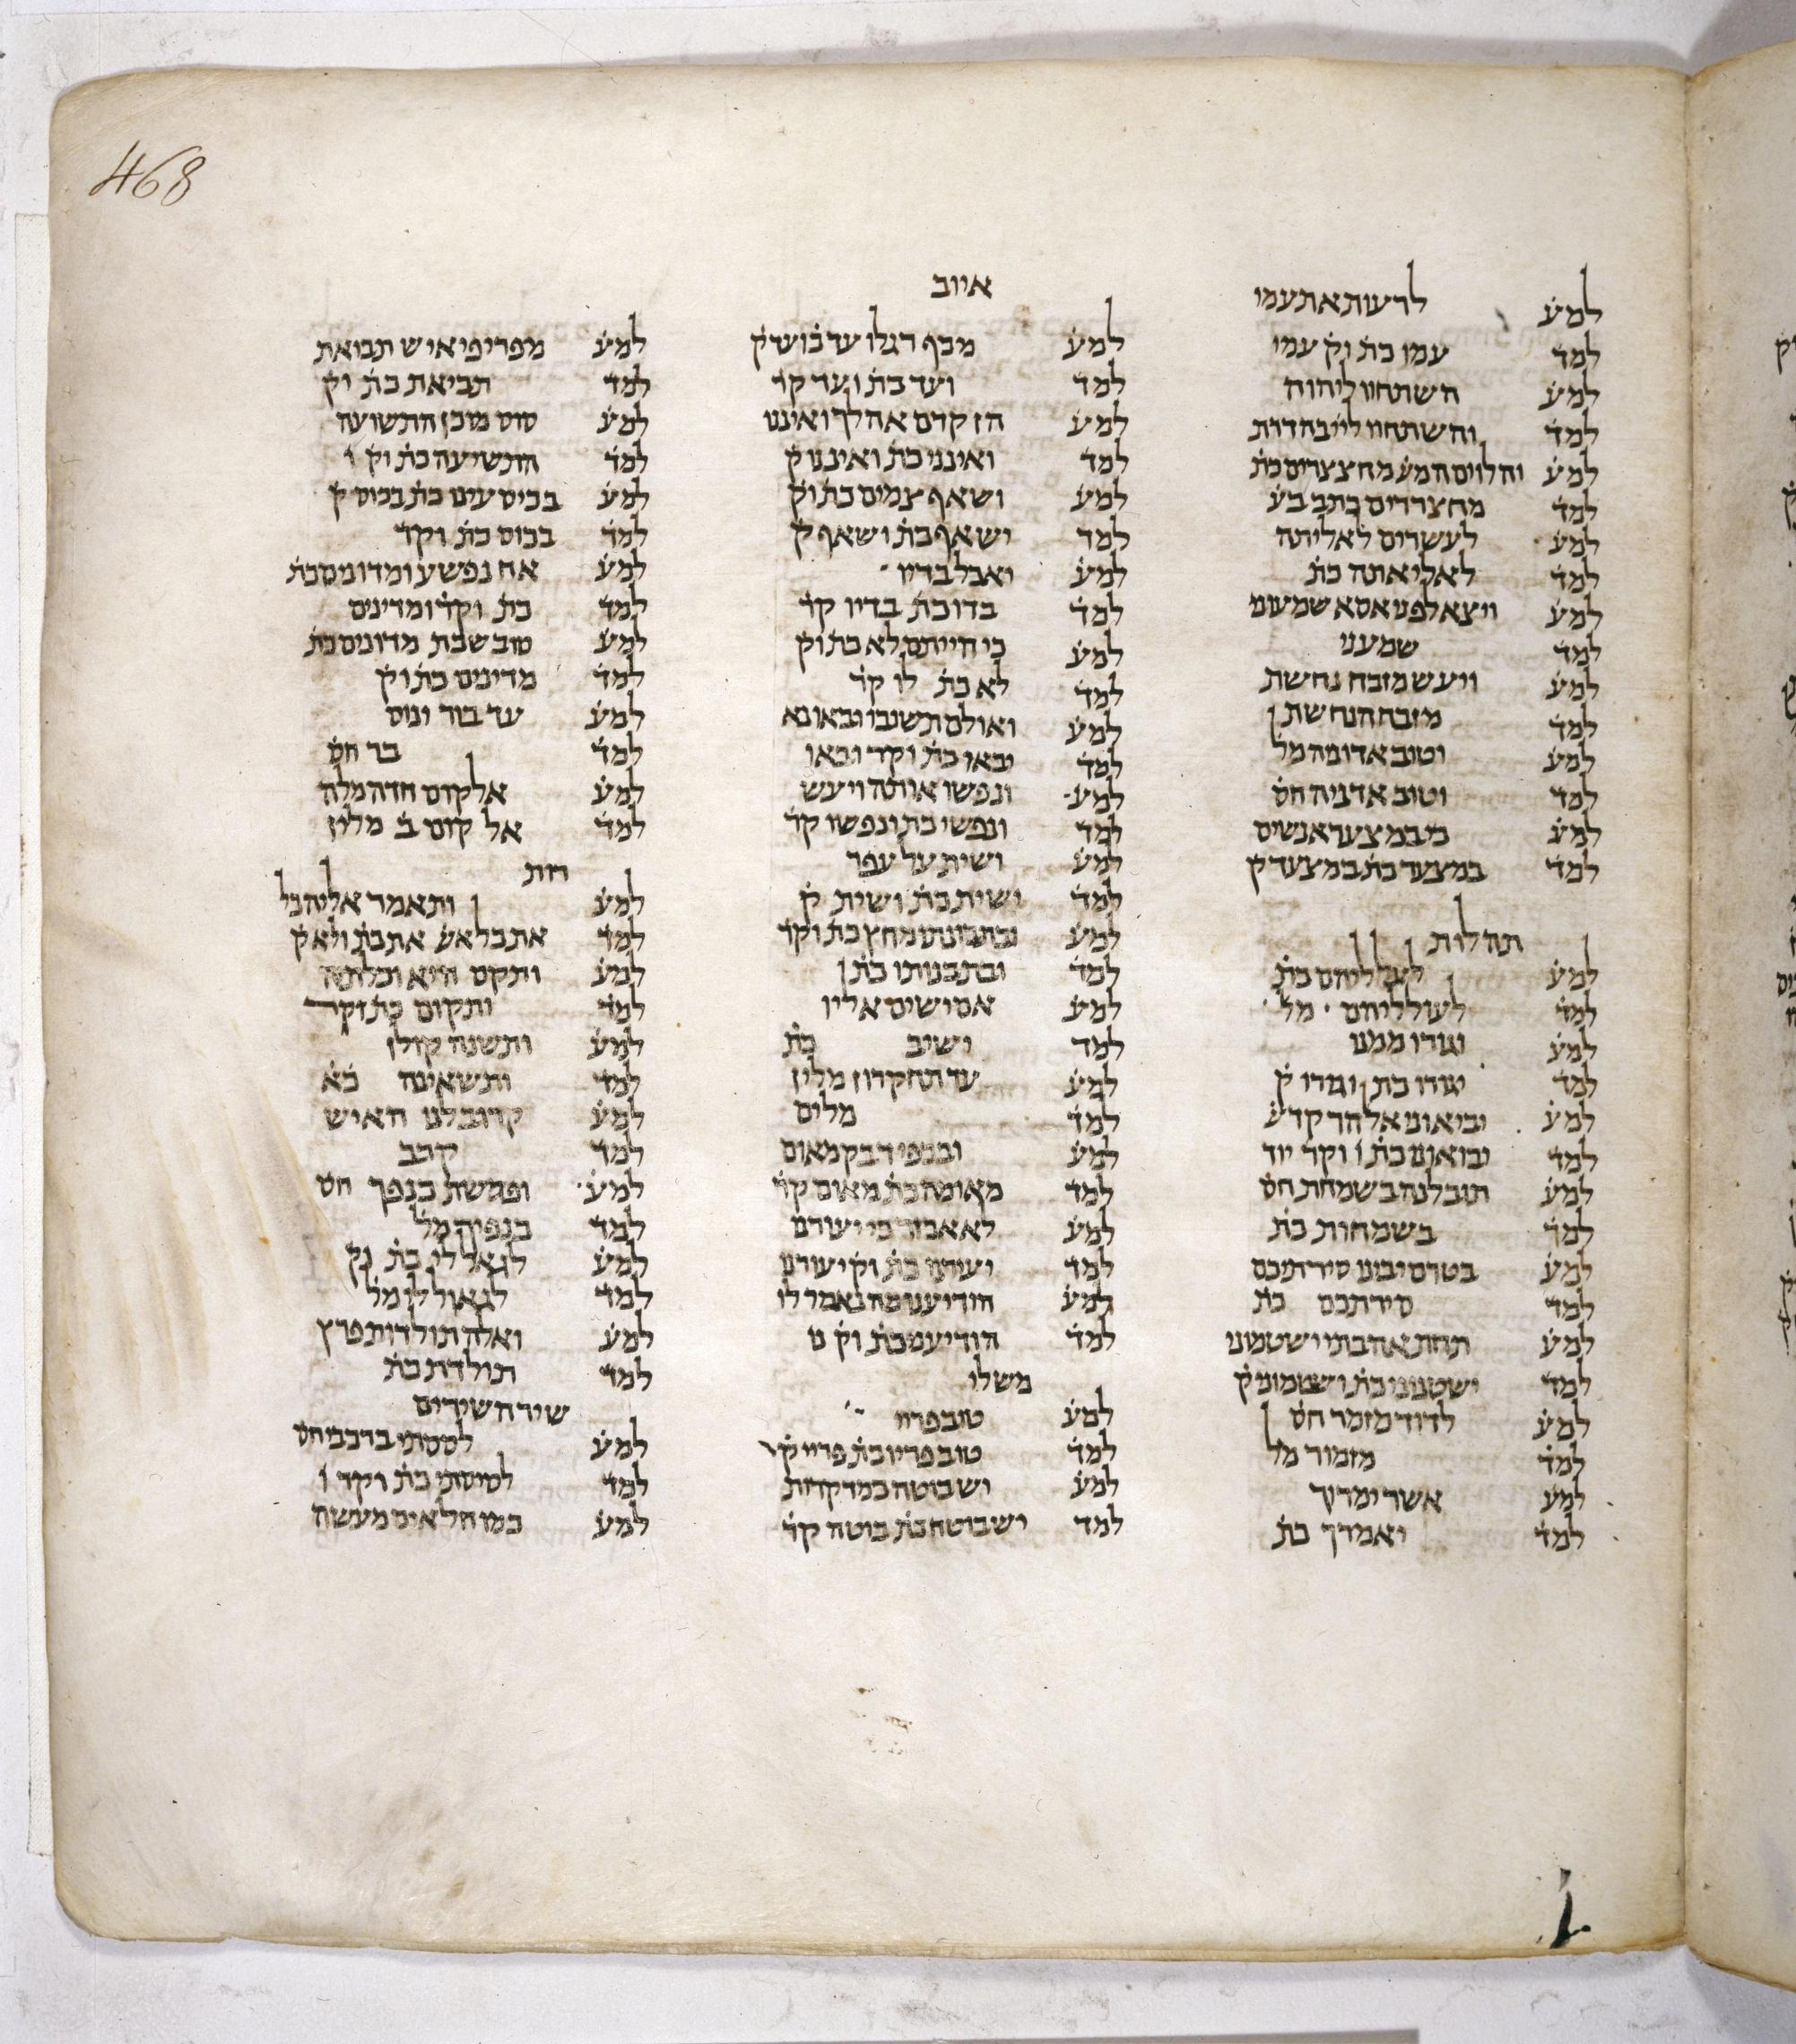 468
למע לרעות את עמי
למד עמו כת וק עמי
למע השתחוו ליהוה
למד והשתחוו לייי בהדרת
למע והלוים המע מחצצרים כת
למד מחצרדים כתב בע
למע לעשרים לאליתה
למד לאליאתה כת
למע ויצא לפני אסא שמעוני
למד שמעני
למע ויעש מזבח נחשת
למד מזבח הנחשת
למע וטוב אדוניה מל
למד וטוב אדניה חס
למע כי במצער אנשים
למד במצער כת במצעד ק
תהלות
למע לעלליהם כת
למד לעולליהם מל
למע יגורו ממנו
למד יגודו כת וגודו ק
למע יביאוני אל הר קדש
למד יבואוני כת ו וקר יוד
למע תובלנה בשמחת חס
למד בשמחות כת
למע בטרם יבינו סירתיכם
למד סירתכם כת
למע תחת אהבתי ישטמוני
למד ישטנוני כת ישטמוני ק
למע לדוד מזמר חס
למד מזמור מל
למע אשר ימרוך
למד יאמדך כת
איוב
למע מכף רגלו עד כו ועד ק
למד ועד כת ועד קר
למע הז קדם אהלך ואיננו
למד ואינני כת ואיננו ק
למע ושאף צמים כת וק
למד ישאף כת ושאף ק
למע יאכל בדיו
למד בדו כת בדיו קר
למע כי חייתם לא כת וק
למד לא כת לו קר
למע ואולם תשובו ובאו נא
למד יבאו כת וקר ובאו
למע ונפשו אותה ויעש
למד ונפשי כת ונפשו קר
למע ושית על עפר
למד ישית כת ושית ק
למע ובתבונתו מחץ כת וקר
למד ובתבנותו כת
למע אם ישים אליו
למד ישיב כת
למע עד תחקרון מלין
למד מלים
למע ובכפי דבק מאום
למד מאומה כת מאום קר
למע לא אכזר כי יעורם
למד יעירנו כת וק יעורנו
למע הודיענו מה נאמר לו
למד הודיענו כת וק נו
משלו
למע טוב פריי
למד טוב פריו כת פריי ק
למע יש בוטה כמדקרות
למד יש בוטח כת בוטה קר
למע מפרי פי איש תבואת
למד תביאת כת וק
למע סוס מוכן התשועה
למד התשיעה כת וק ו
למע בכיס עינו כת בכוס ק
למד בכוס כת וקר
למע אח נפשע ומדונים כת
למד כת וקר ומדינים
למע טוב שבת מדונים כת
למד מדינים כת וק
למע עד בור ינוס
למד בר חס
למע אלקום חדה מלה
למד אל קום ב מלין
רות
למע ותאמר אליה כל
למד את כל אש את כת ולא ק
למע ותקם היא וכלתיה
למד ותקום כת וקר
למע ותשנה קולן
למד ותשאינה כא
למע קרוב לנו האיש
למד קרב
למע ופרשת כנפך חס
למד כנפיך מל
למע לגאל לי כת וק
למד לגאול לי מל
למע ואלה תולדות פרץ
למד תולדת כת
שיר השירים
למע לססתי ברכבי חס
למד לסיסתי כת וקר ו
למע כמו חלאים מעשה